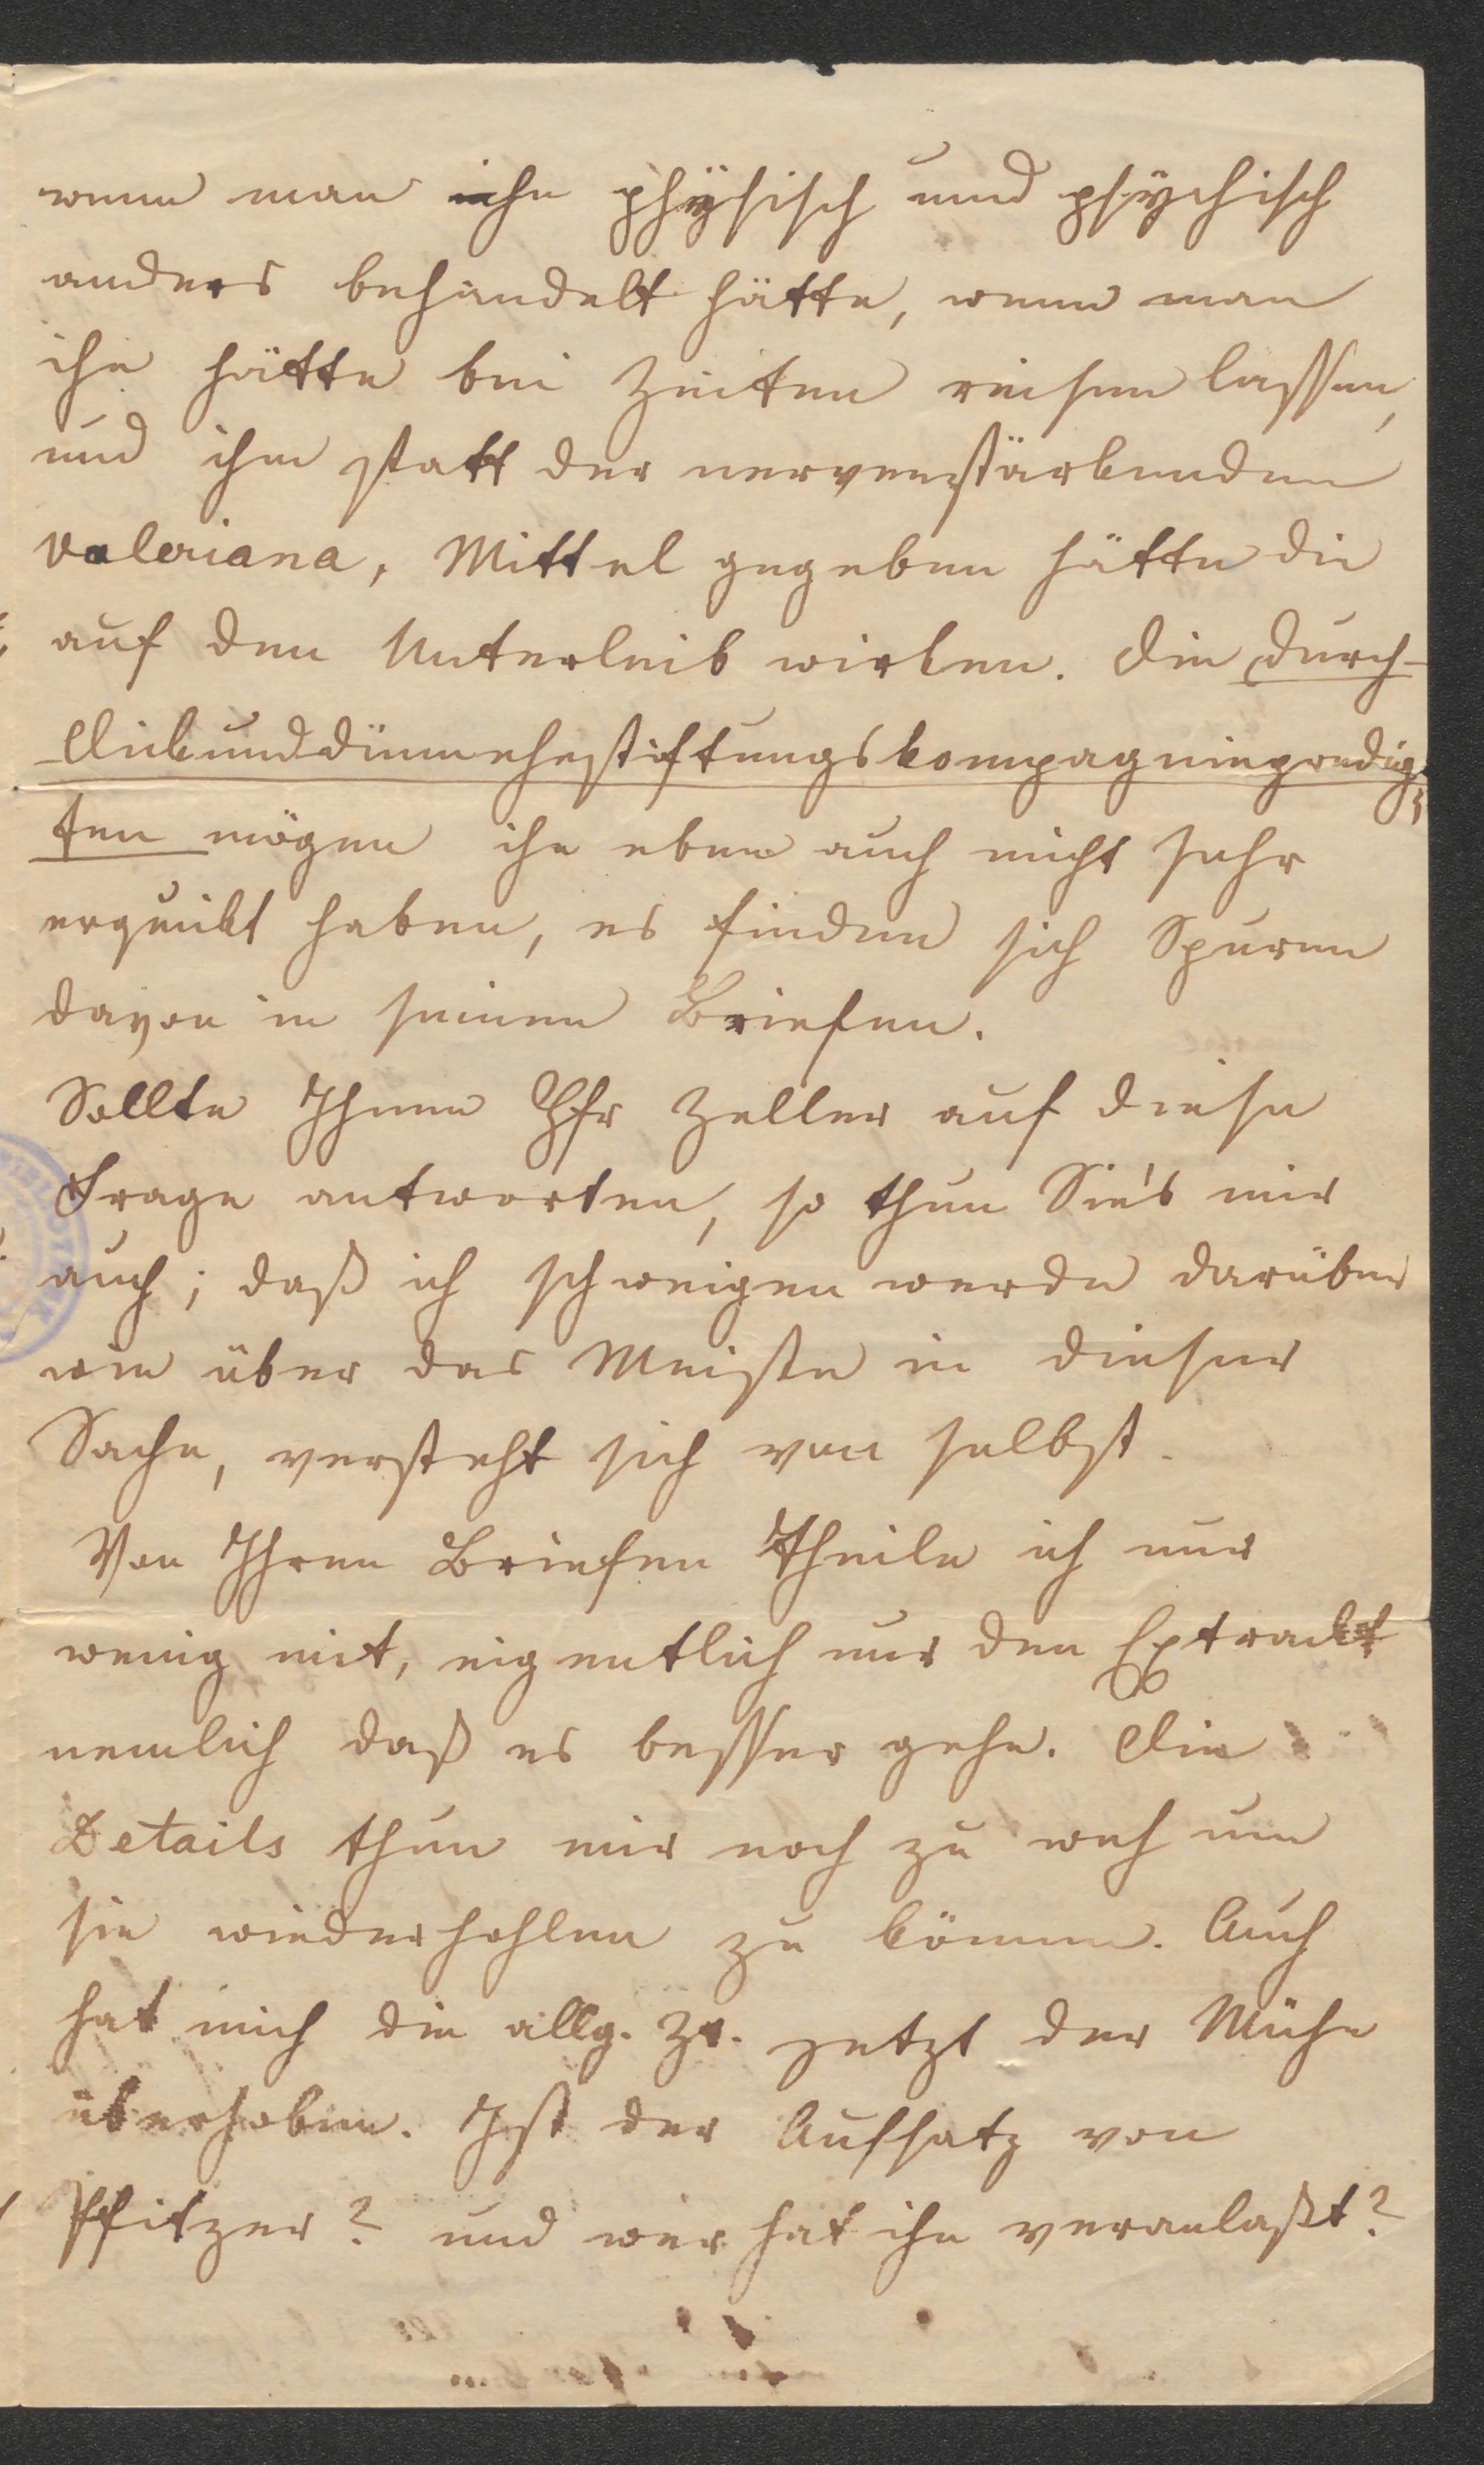 wenn man ihn phÿsisch und psÿchisch
anders behandelt hätte, wenn man
ihn hätte bei Zeiten reisen lassen,
und ihm statt der nervenstärkenden
valeriana, Mittel gegeben hätte die
auf den Unterleib wirken. Die durch-
dickunddünnehestiftungskompagniepredig-
ten mögen ihn eben auch nicht sehr
erquikt haben, es finden sich Spuren
davon in seinen Briefen.
Sollte Ihnen Hfr Zeller auf diese
Frage antworten, so thun Sie's mir
auch; daß ich schweigen werde darüber
wie über das Meiste in dieser
Sache, versteht sich von selbst.
Von Ihren Briefen theile ich nur
wenig mit, eigentlich nur den Extrackt
nemlich daß es besser gehe. Die
Details thun mir noch zu weh um
sie wiederhohlen zu können. Auch
hat mich die allg. Zt. jetzt der Mühe
überhoben. Ist der Aufsatz von
Pfitzer? und wer hat ihn veranlaßt?